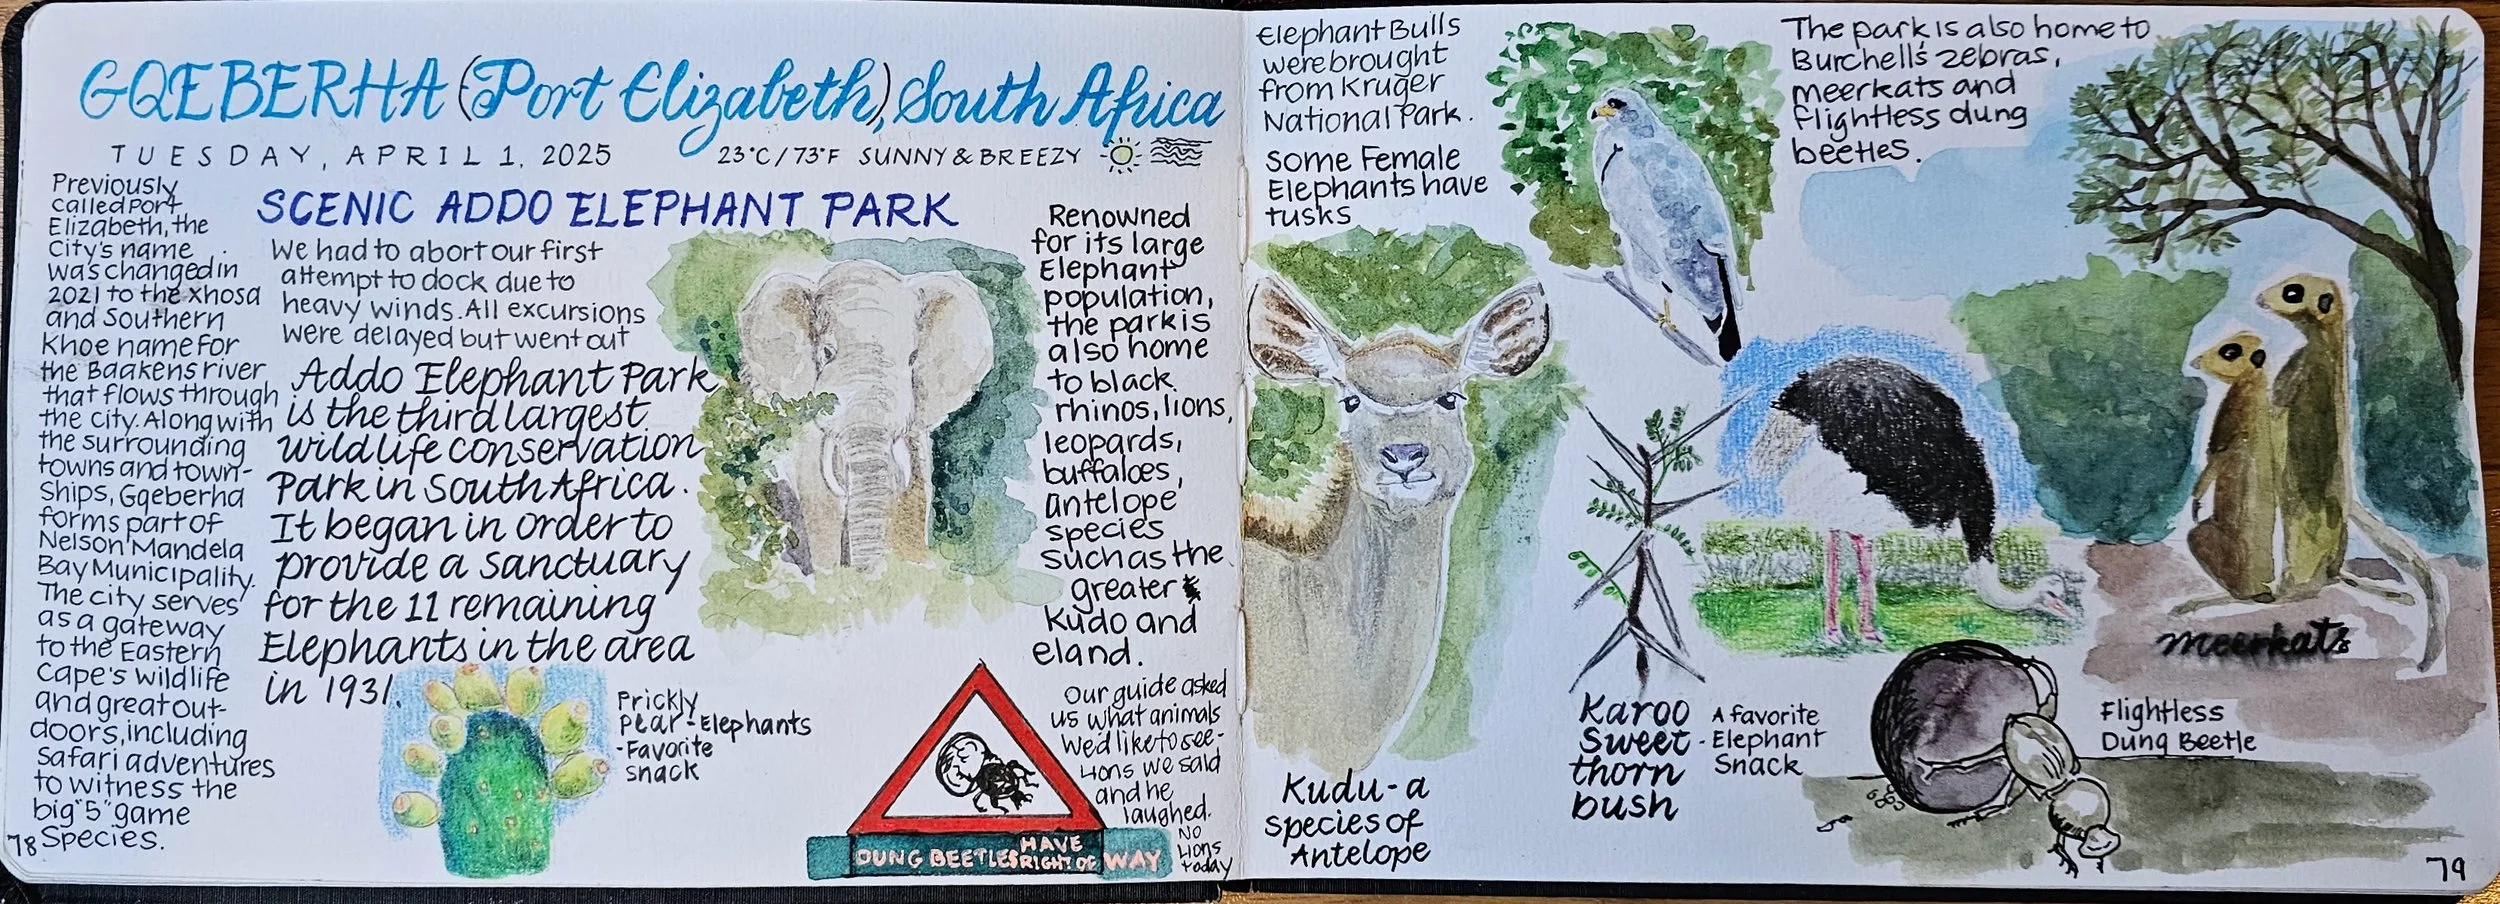 GQEBERHA (Port Elizabeth), South Africa
TUESDAY, APRIL 1, 2025
23°C/73°F SUNNY & BREEZY
Previously
called Port
Elizabeth, the
City's name
was changed in
2021 to the Xhosa
and Southern
Khoe name for
the Baakens river
that flows through
the city. Along with
the surrounding
towns and town-
ships, Gqeberha
forms part of
Nelson Mandela
Bay Municipality.
The city serves
as a gateway
to the Eastern
Cape's wildlife
and great out-
doors, including
Safari adventures
to witness the
big "5" game
Species.
78
SCENIC ADDO ELEPHANT PARK
We had to abort our first
attempt to dock due to
heavy winds. All excursions
were delayed but went out
Addo Elephant Park
is the third largest
wildlife conservation
Park in South Africa.
It began in order to
provide a sanctuary
for the 11 remaining
Elephants in the area
in 1931.
Prickly
Pear - Elephants
- Favorite
Snack
Renowned
for its large
Elephant
population,
the park is
also home
to black
rhinos, lions,
leopards,
buffaloes,
antelope
species
such as the
greater
Kudo and
eland.
Our guide asked
us what animals
We'd like to see-
Lions we said
and he
laughed.
No
Lions
today
DUNG BEETLES HAVE
RIGHT OF WAY
Elephant Bulls
were brought
from Kruger
National Park.
Some Female
Elephants have
tusks
Kudu - a
species of
Antelope
Karoo
Sweet
thorn
bush
A favorite
- Elephant
Snack
The park is also home to
Burchell's zebras,
meerkats and
flightless dung
beetles.
meerkats
Flightless
Dung Beetle
79